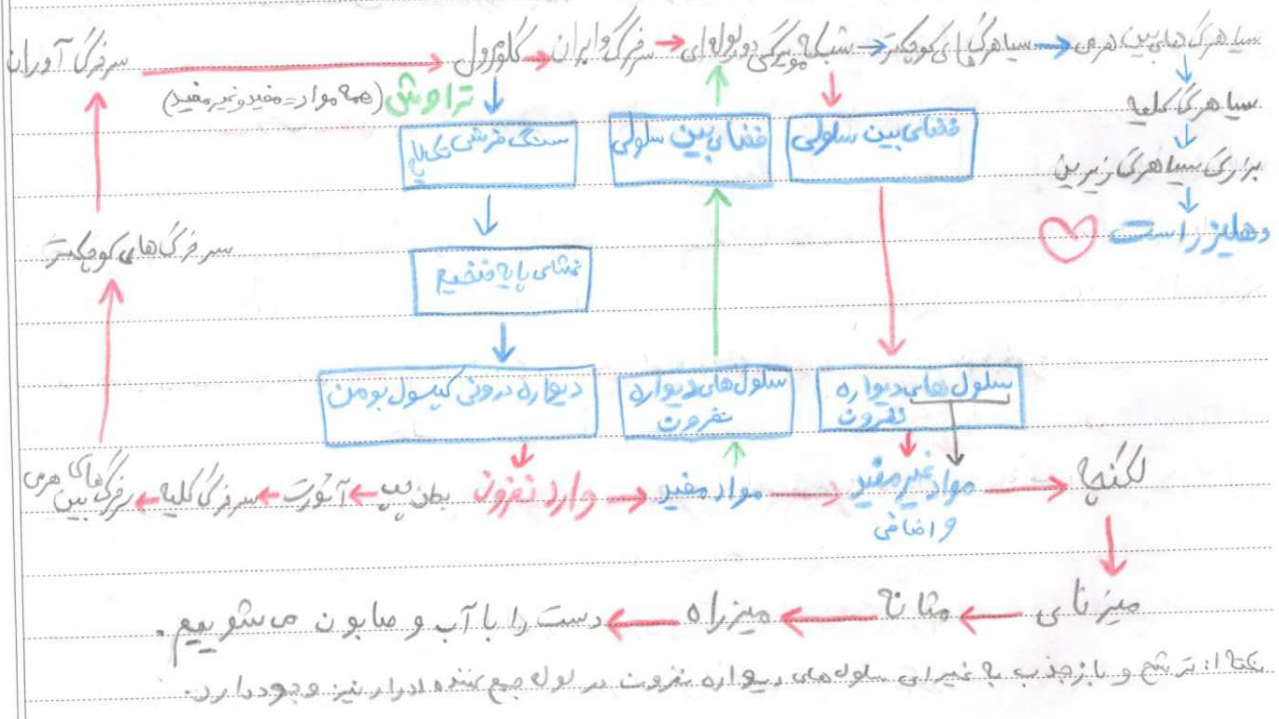 سرخرگ آوران
گلومرول
سرخرگ وابران
شبکه مویرگی دور لوله ای
سیاهرگ های کوچکتر
سیاهرگ های بین هرمی
تراوش (همه مواد = مفید و غیر مفید)
سیاهرگ کلیه
سنگ فرشی تک لایه
فضای بین سلولی
فضای بین سلولی
بزرگ سیاهرگ زیرین
سرخرگ های کوچکتر
دهلیز راست
غشای پایه ضخیم
دیواره درونی کپسول بومن
سلول های دیواره
نفرون
سلول های دیواره
نفرون
سرخرگ های بین هرمی
سرخرگ کلیه
آئورت
بطن چپ
وارد نفرون
مواد مفید
مواد غیر مفید
و اضافی
لگنچه
میزنای
مثانه
میزراه
دست را با آب و صابون می‌شوییم.
نکته ۱: ترشح و بازجذب به غیر از سلول های دیواره نفرون در لوله جمع کننده ادرار نیز وجود دارد.